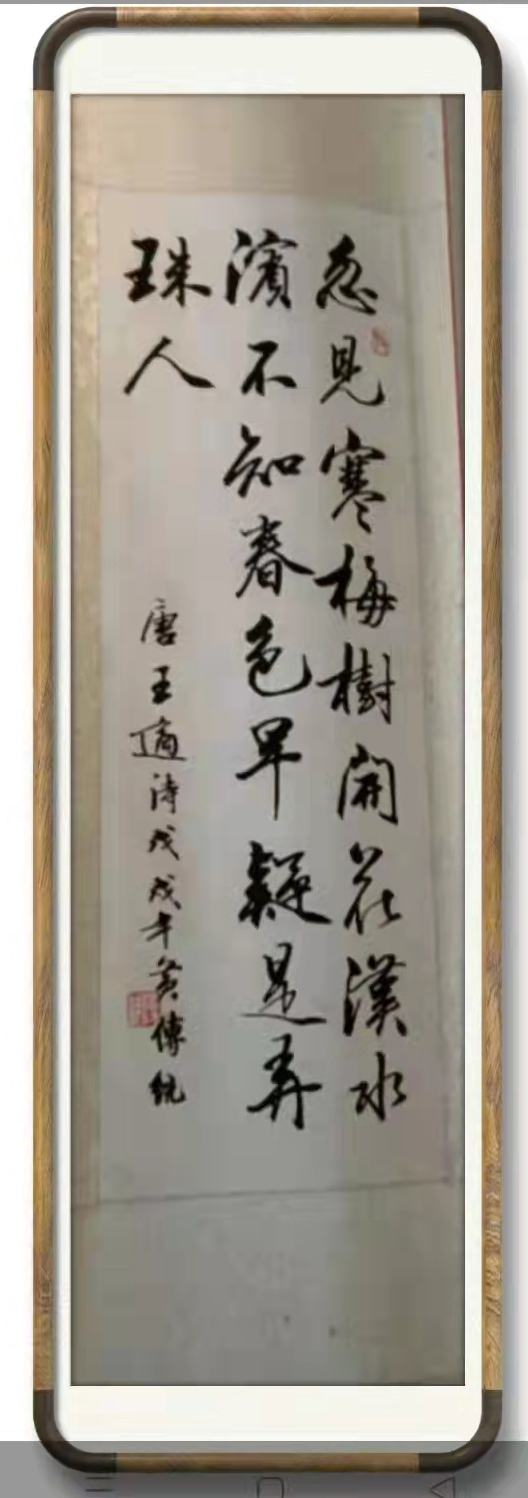 忽見寒梅樹開花漢水
濱不知春色早疑是弄
珠人
唐王適詩戊戌年黄傳統